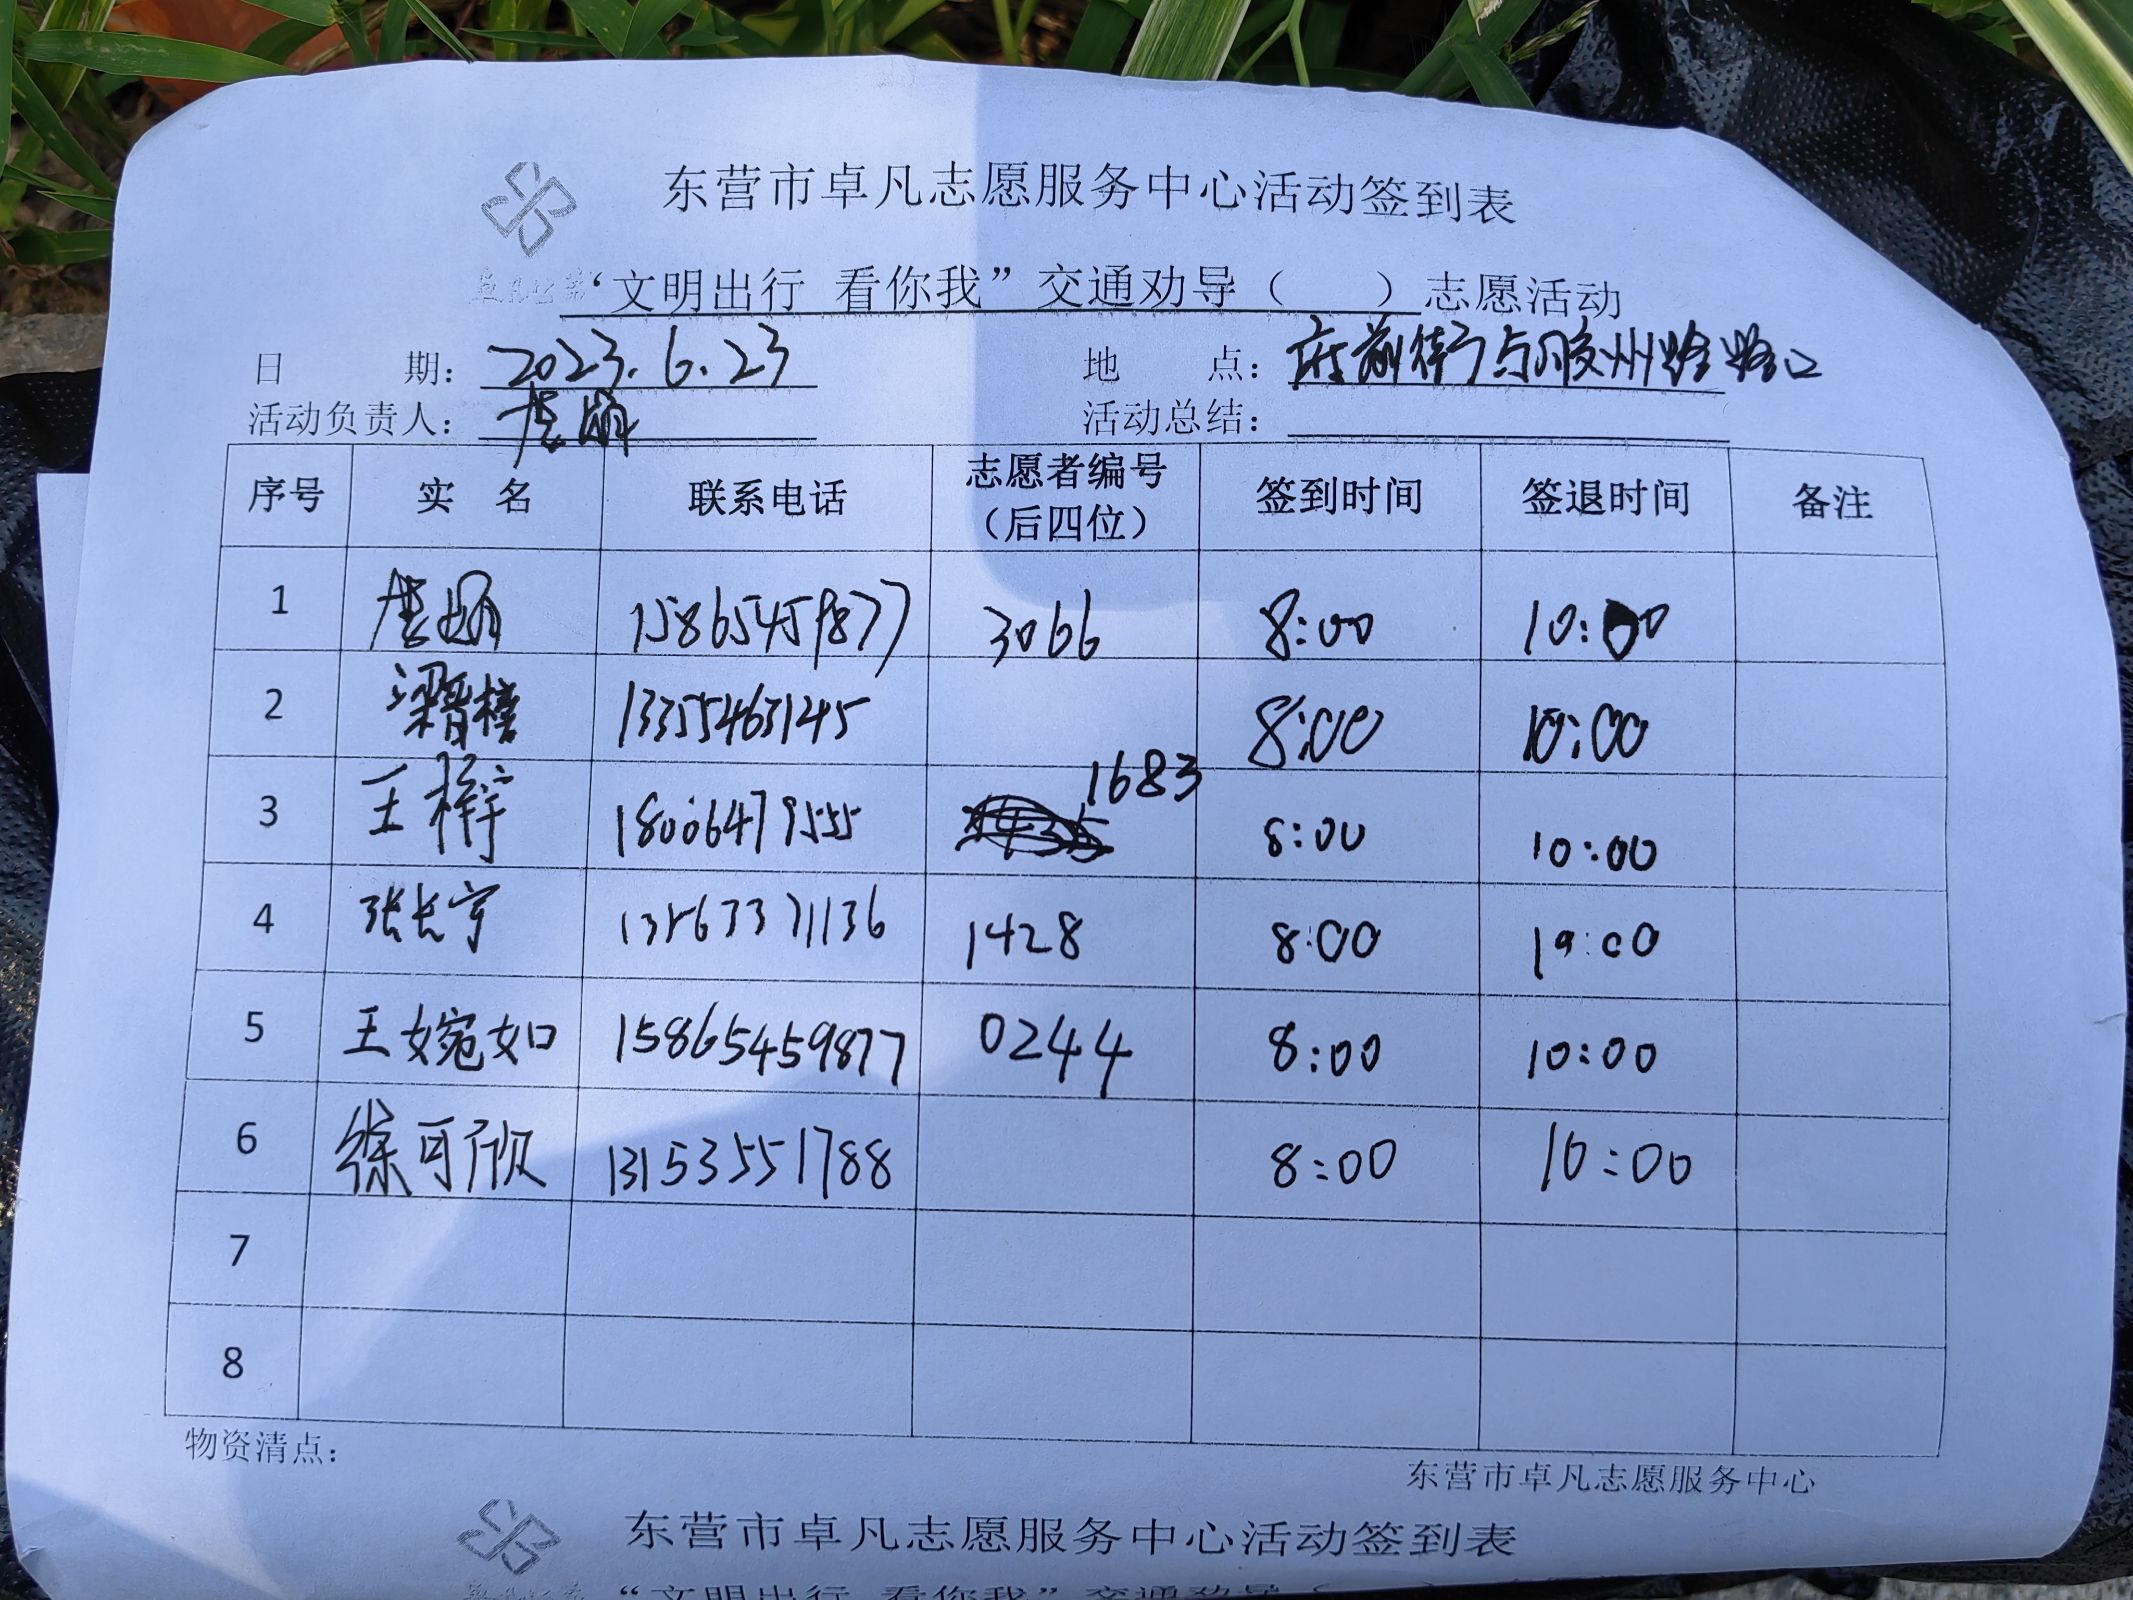 东营市卓凡志愿服务中心活动签到表
“文明出行 看你我”交通劝导（ ）志愿活动
日 期：2023.6.23 地 点：府前街与胶州路路口
活动负责人： 活动总结：
序号 实 名 联系电话 志愿者编号（后四位） 签到时间 签退时间 备注
1 15865459877 3066 8:00 10:00
2 13355463145 8:00 10:00
3 王梓宇 18006479555 1683 8:00 10:00
4 张长宇 13563371136 1428 8:00 10:00
5 王婉如 15865459877 0244 8:00 10:00
6 徐可欣 13153551788 8:00 10:00
7
8
物资清点：
东营市卓凡志愿服务中心
东营市卓凡志愿服务中心活动签到表
“文明出行 看你我”交通劝导（ ）